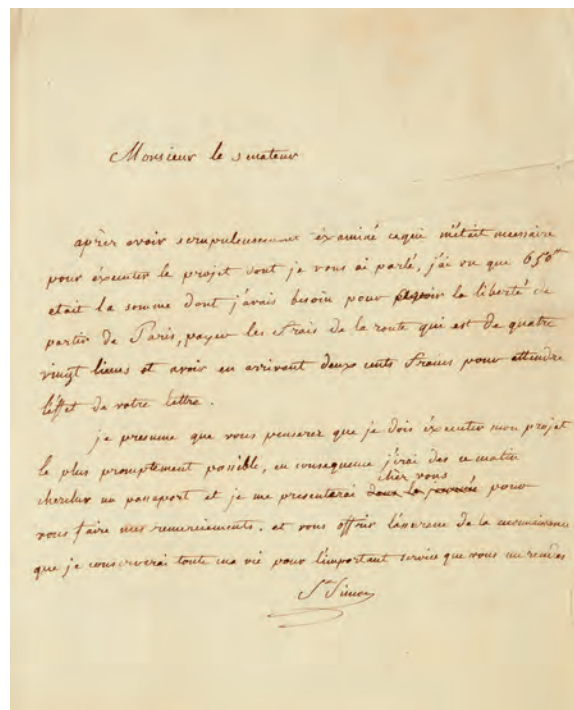 Monsieur le senateur
après avoir scrupuleusement éxaminé cequi m'était necessaire
pour éxecuter le projet dont je vous ai parlé, j'ai vu que 650ᶠᶠ
etait la somme dont j'avais besoin pour la liberté de
partir de Paris, payer les frais de la route qui est de quatre
vingt lieues et avoir en arrivant deux cents francs pour attendre
l'effet de votre lettre.
je presume que vous penserez que je dois éxecuter mon projet
le plus promptement possible, en consequence j'irai des ce matin
chez vous
chercher un passaport et je me presenterai dans la journée pour
vous faire mes remerciements. et vous offrir l'assurance de la reconnaissance
que je conserverai toute ma vie pour l'important service que vous me rendez
St Simon